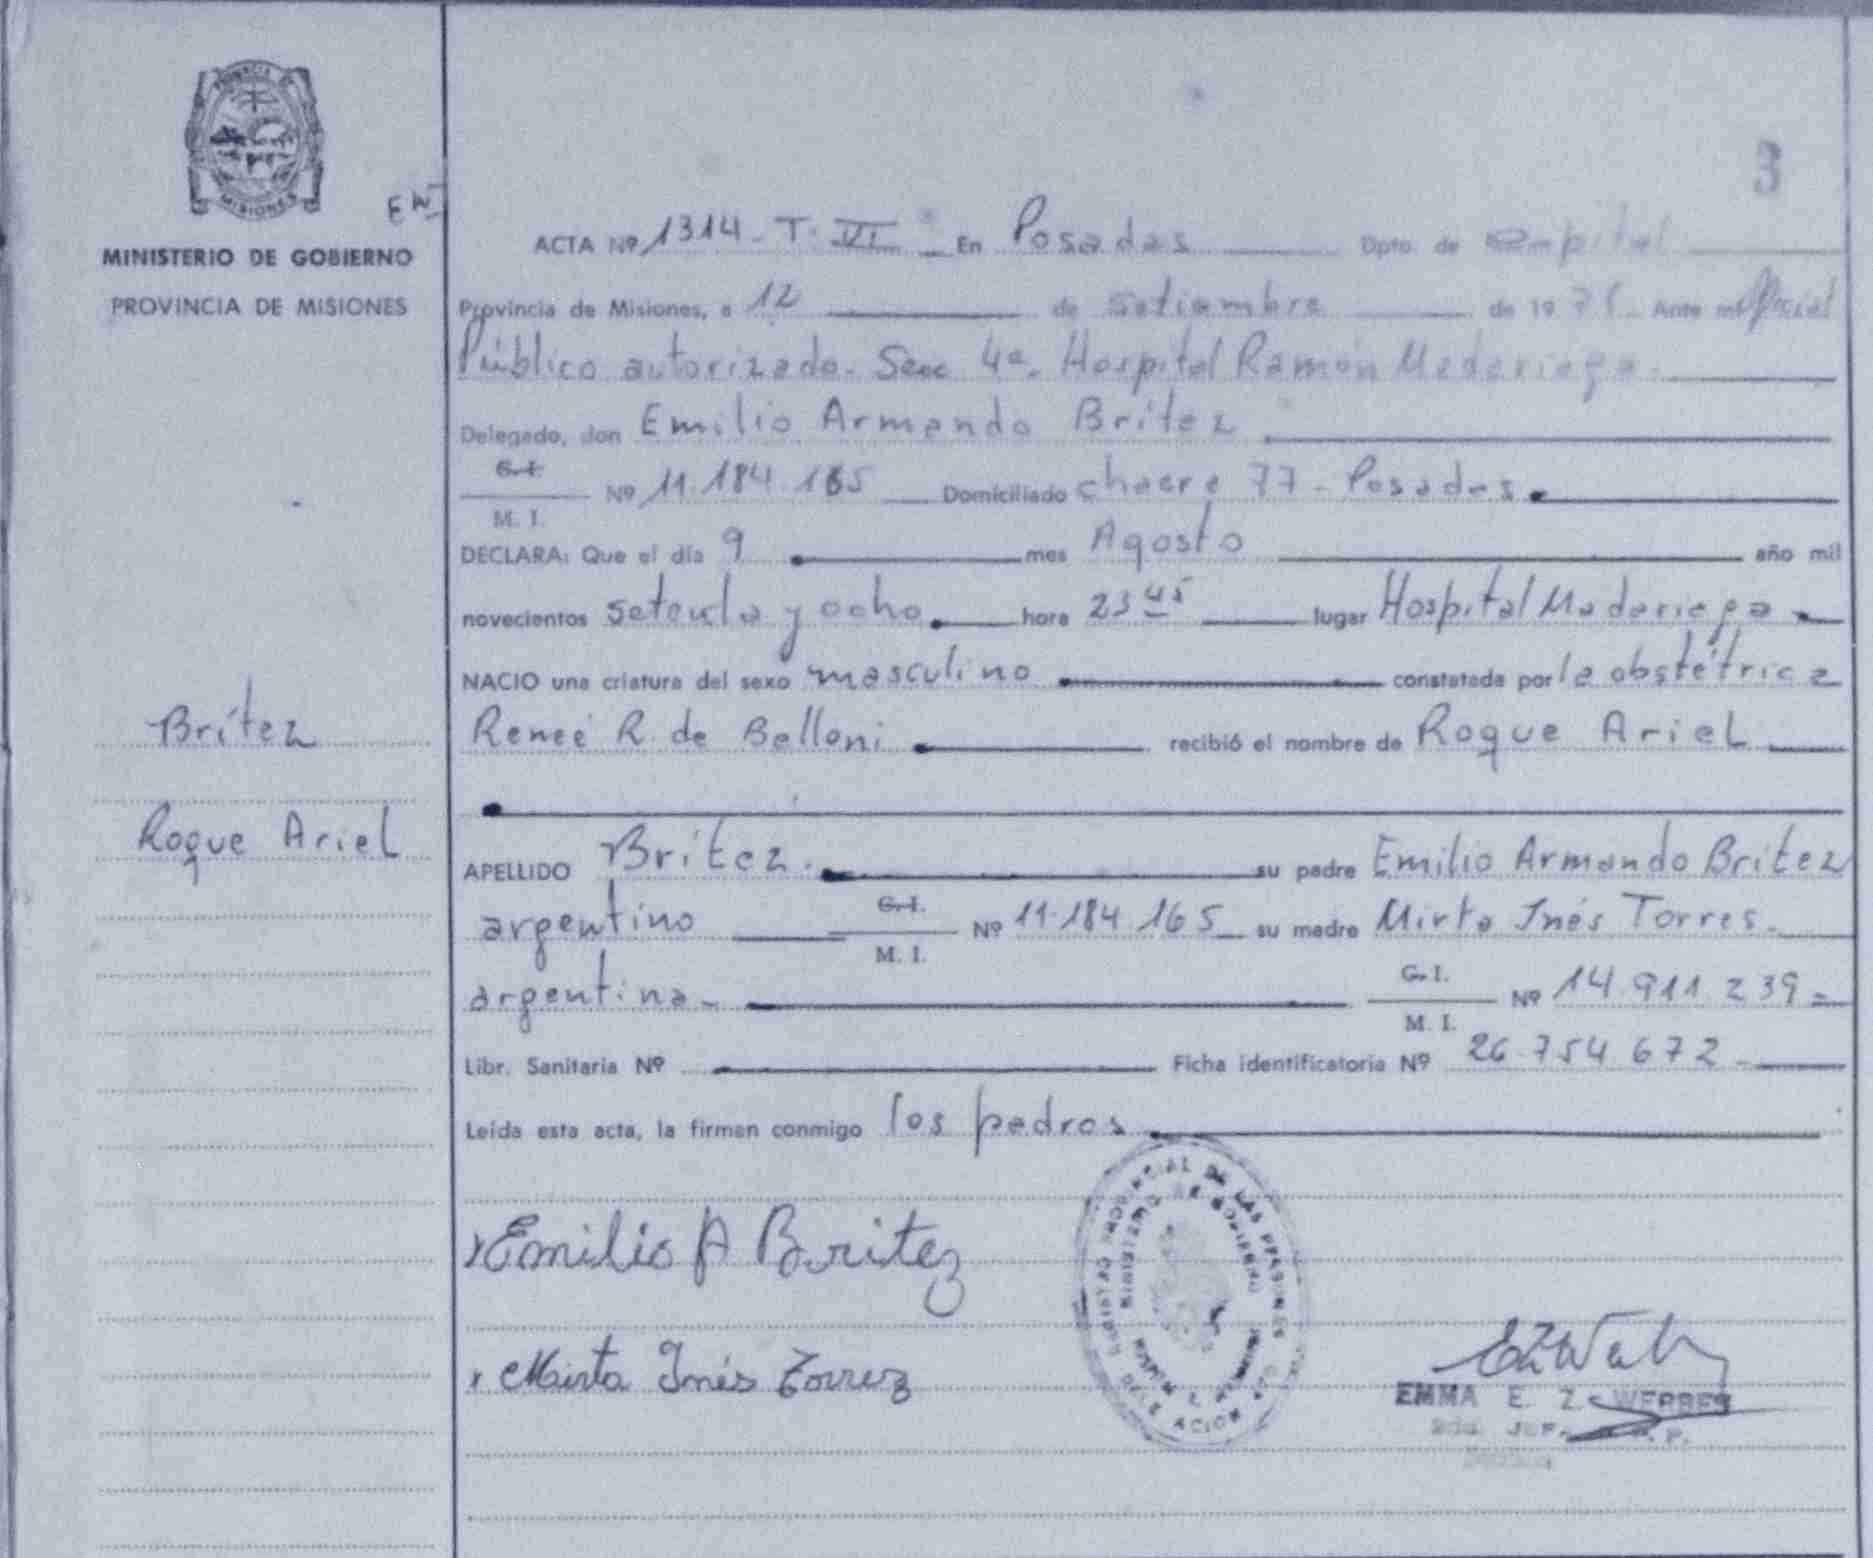 PROVINCIA DE
MISIONES
EN
MINISTERIO DE GOBIERNO
PROVINCIA DE MISIONES
3
ACTA Nº 1314 - T. VI En Posadas Dpto. de Capital
Provincia de Misiones, a 12 de Setiembre de 19 78 - Ante mí Oficial
Público autorizado. Secc 4ª. Hospital Ramón Madariaga.
Delegado, don Emilio Armando Britez
C. I. M. I. Nº 11.184.165 Domiciliado chacra 77 - Posadas
DECLARA: Que el día 9 mes Agosto año mil
novecientos setenta y ocho hora 23 45 lugar Hospital Madariaga
NACIO una criatura del sexo masculino constatada por la obstétrica
Reneé R. de Belloni recibió el nombre de Roque Ariel
Brítez
Roque Ariel
APELLIDO Brítez. su padre Emilio Armando Britez
argentino C. I. M. I. Nº 11.184.165 su madre Mirta Inés Torres.
argentina C. I. M. I. Nº 14.911.239
Libr. Sanitaria Nº Ficha identificatoria Nº 26.754.672
Leída esta acta, la firman conmigo los padres
Emilio A Britez
Mirta Inés Torrez
PROVINCIAL DE LAS PERSONAS
MINISTERIO DE GOBIERNO
DELEGACION
EMMA E. Z. WERBES